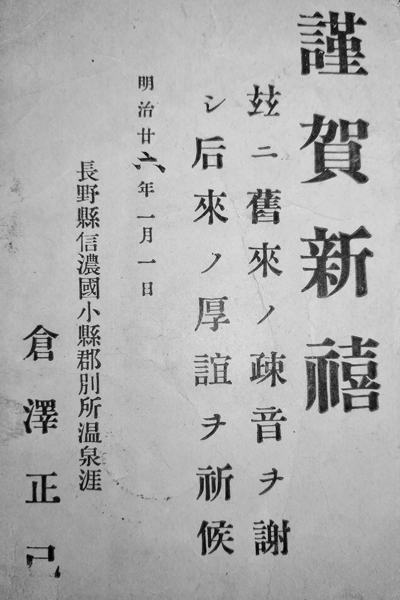 謹賀新禧
玆ニ舊來ノ疎音ヲ謝
シ后來ノ厚誼ヲ祈候
明治廿六年一月一日
長野縣信濃國小縣郡別所温泉涯
倉澤正己